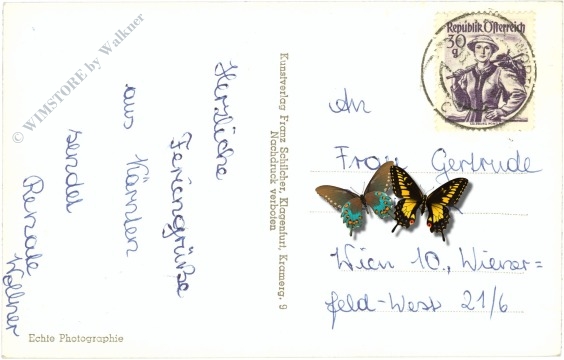 Herzliche
Feriengrüße
aus Kärnten
sendet
Renate
Wollner
Kunstverlag Franz Schilcher, Klagenfurt, Kramerg. 9
Nachdruck verboten
Echte Photographie
Republik Österreich
30
g
An
Frau Gertrude
Wien 10., Wiener=
feld-West 21/6
© WIMSTORE by Walkner